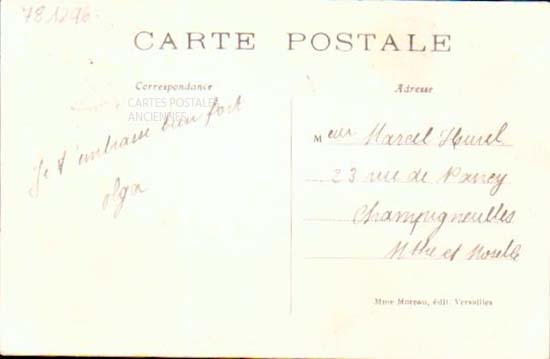 781296-
CARTE POSTALE
Correspondance
Adresse
CARTES POSTALES
ANCIENNES
Je t'embrasse bien fort
Olga
Meur Marcel Hurel
23 rue de Nancy
Champigneulles
Mthe et Moselle
Mme Moreau, édit. Versailles